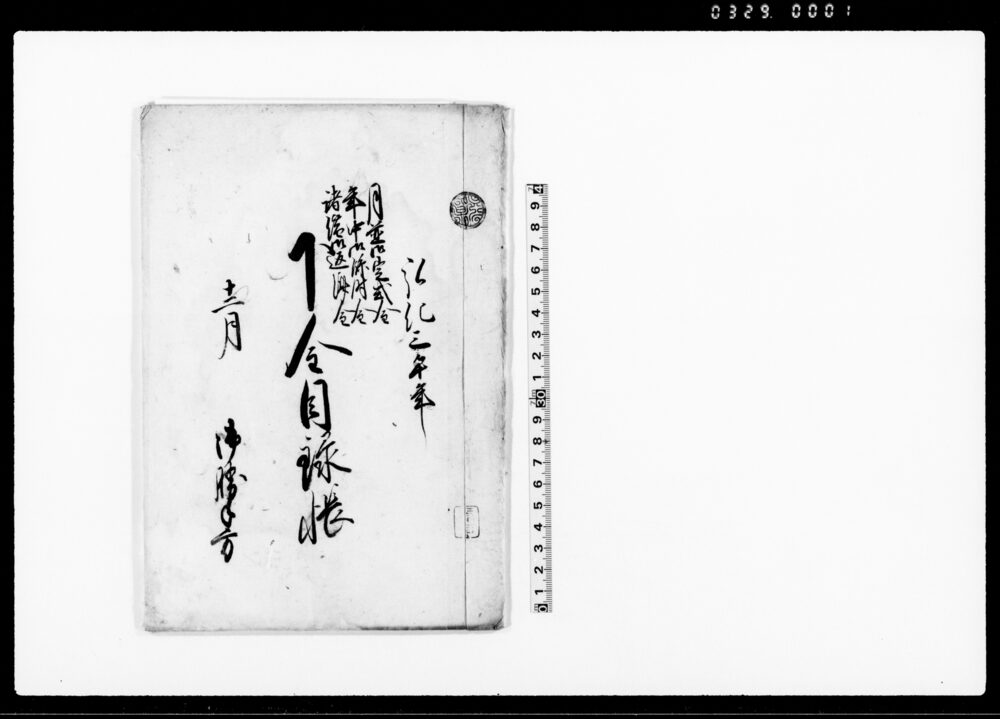 0329 0001
弘化三午年
月並御定式金
年中御臨時金
諸繰御返済金
下金目録帳
十二月
御勝手方
0 1 2 3 4 5 6 7 8 9 30 1 2 3 4 5 6 7 8 9 4